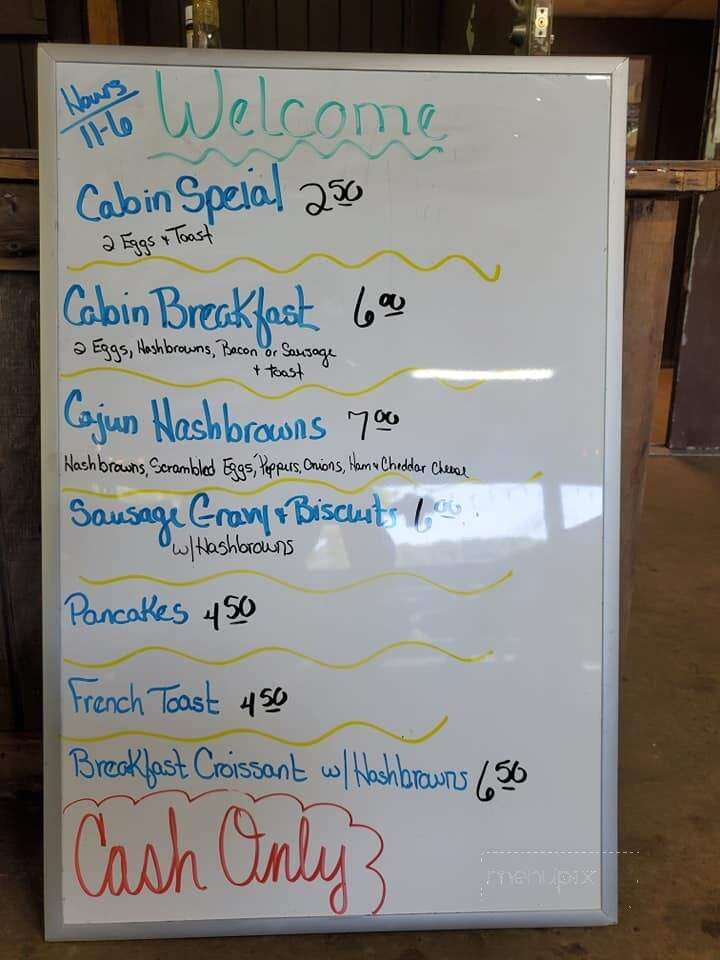 Hours
11-6
Welcome
Cabin Speial 2 50
2 Eggs + Toast
Cabin Breakfast 6 00
2 Eggs, Hashbrowns, Bacon or Sausage
+ toast
Cajun Hashbrowns 7 00
Hashbrowns, Scrambled Eggs, Peppers, Onions, Ham & Cheddar Cheese
Sausage Gravy + Biscuits 6 00
w/ Hashbrowns
Pancakes 4 50
French Toast 4 50
Breakfast Croissant w/ Hashbrowns 6 50
Cash Only
menupix